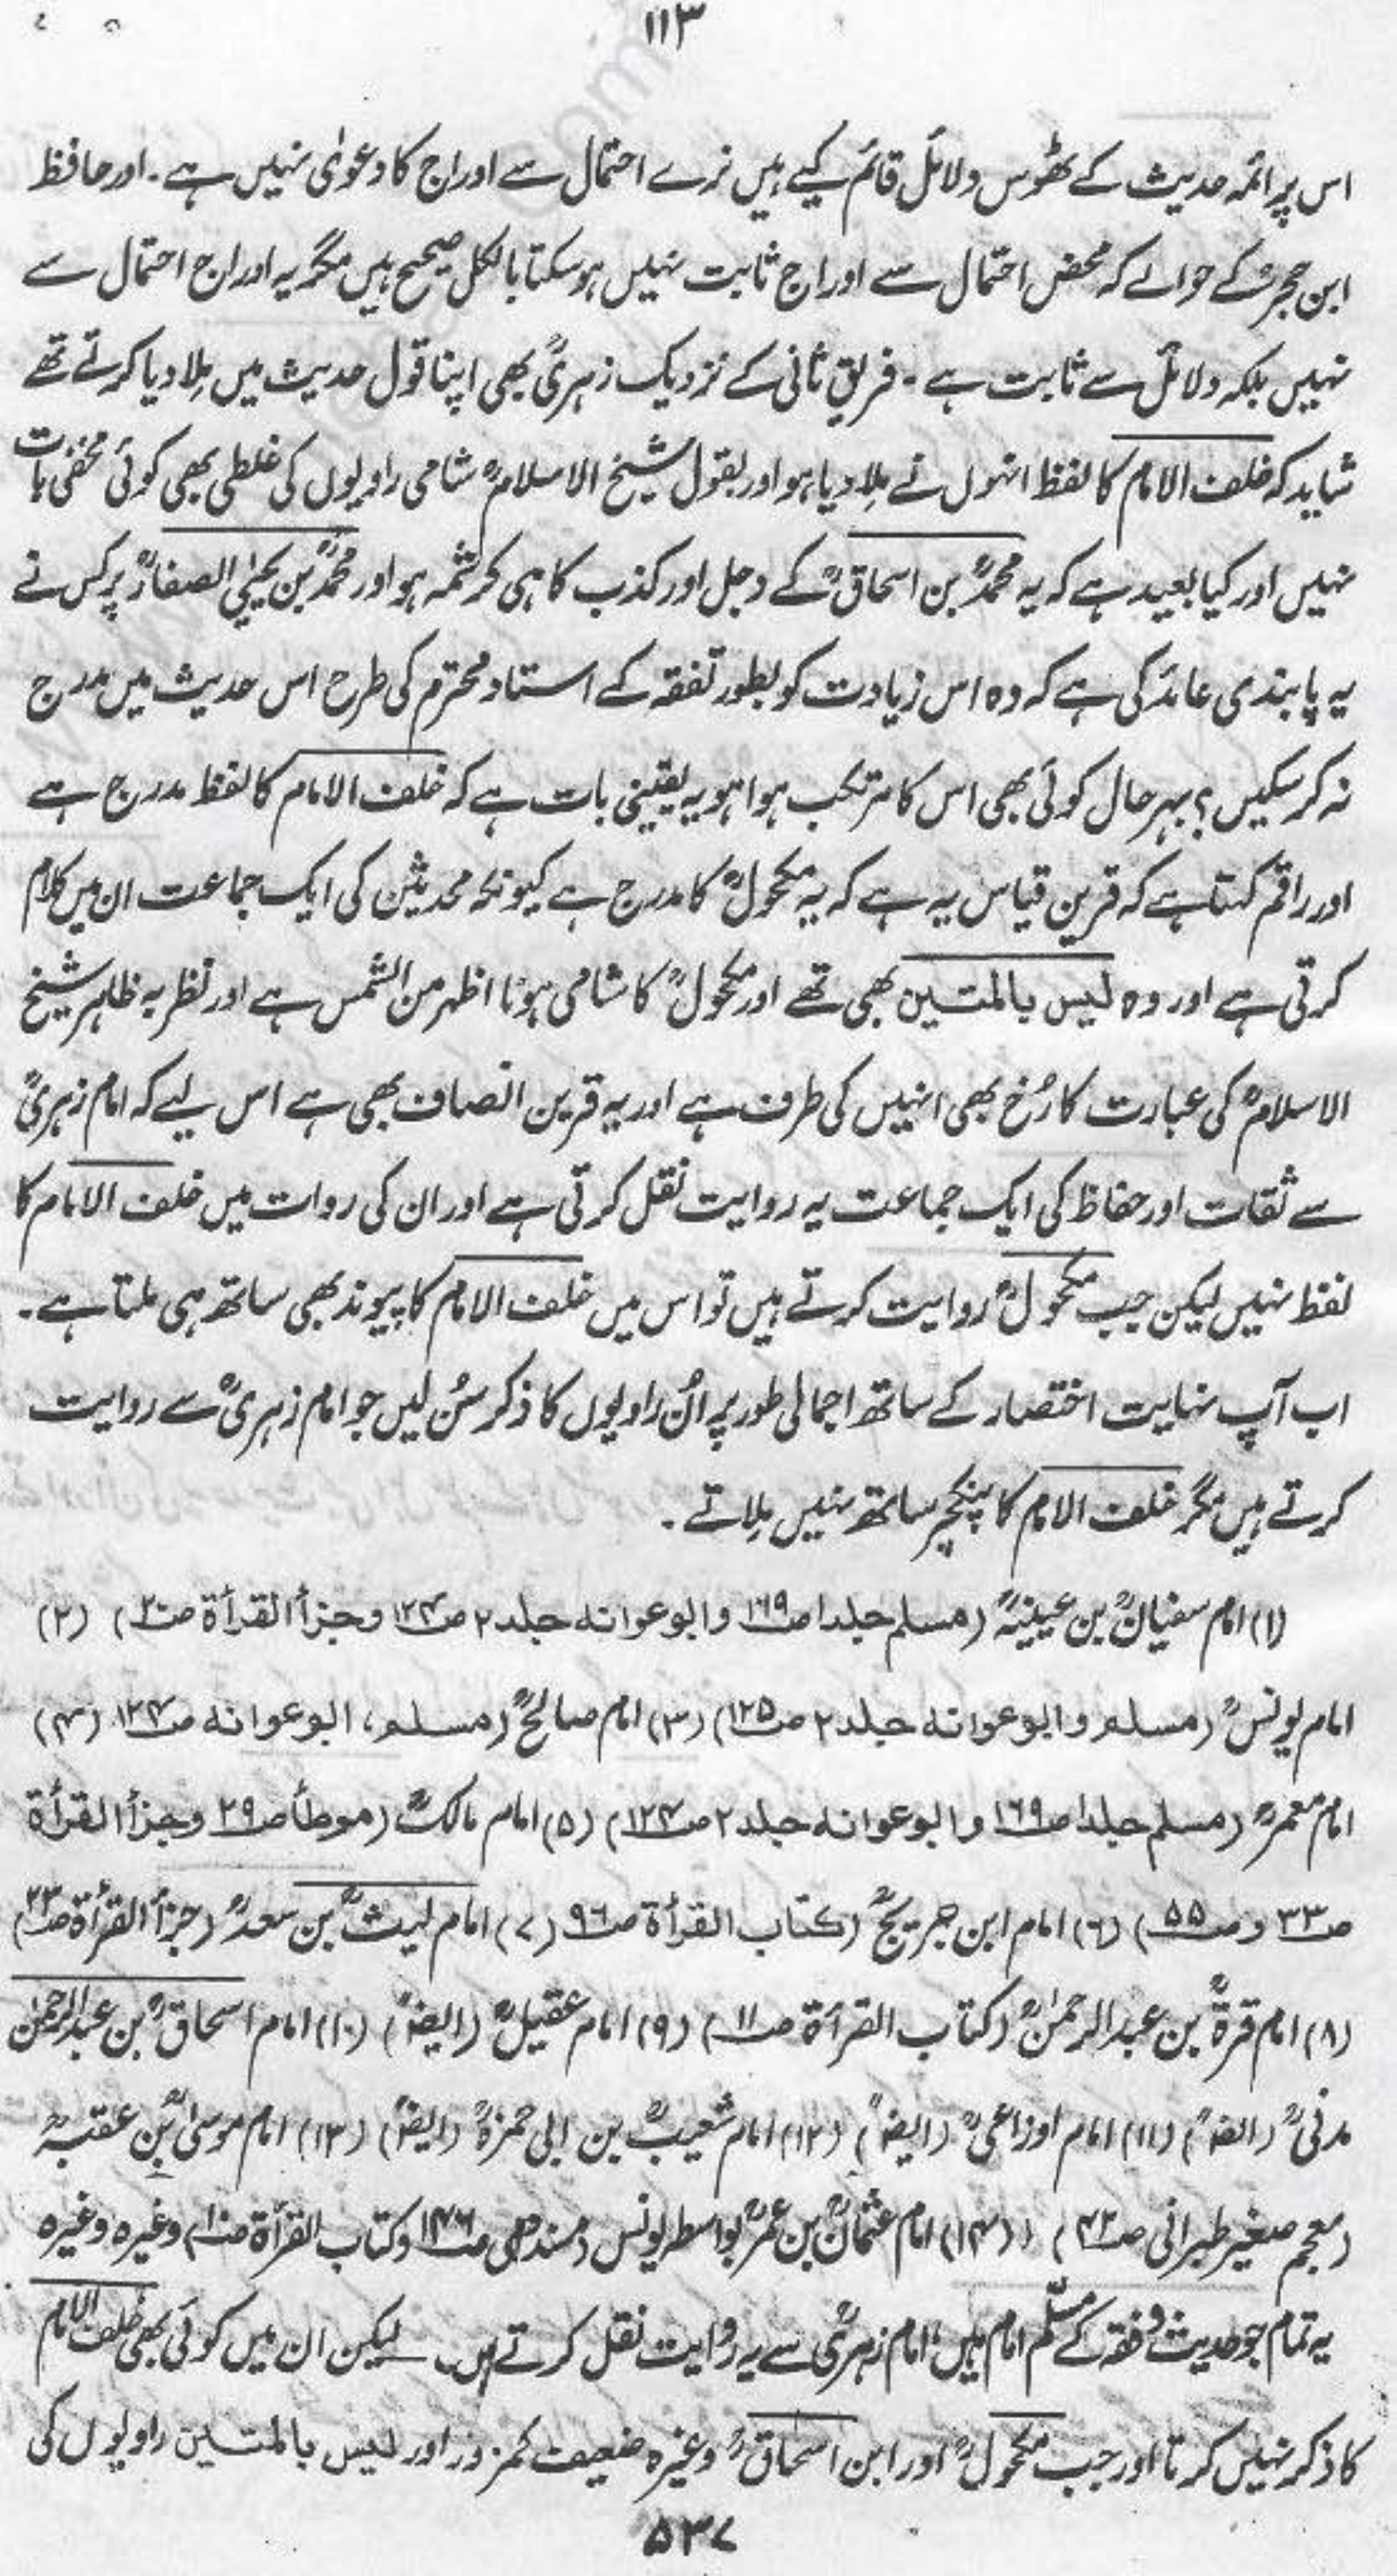 ۱۱۳
اس پر ائمہ حدیث کے ٹھوس دلائل قائم کیے ہیں نرے احتمال سے ادراج کا دعویٰ نہیں ہے۔ اور حافظ
ابن حجرؒ کے حوالے کہ محض احتمال سے ادراج ثابت نہیں ہو سکتا بالکل صحیح ہیں مگر یہ ادراج احتمال سے
نہیں بلکہ دلائل سے ثابت ہے۔ فریق ثانی کے نزدیک زہریؒ بھی اپنا قول حدیث میں مِلا دیا کرتے تھے
شاید کہ خلف الامام کا لفظ انہوں نے مِلا دیا ہو اور بقول شیخ الاسلامؒ شامی راویوں کی غلطی بھی کوئی مخفی بات
نہیں اور کیا بعید ہے کہ یہ محمدؒ بن اسحاقؒ کے دجل اور کذب کا ہی کرشمہ ہو اور محمدؒ بن یحییٰ الصفارؒ پر کس نے
یہ پابندی عائد کی ہے کہ وہ اس زیادت کو بطور تفقہ کے استاد محترم کی طرح اس حدیث میں مدرج
نہ کر سکیں؟ بہرحال کوئی بھی اس کا مرتکب ہوا ہو یہ یقینی بات ہے کہ خلف الامام کا لفظ مدرج ہے
اور راقم کہتا ہے کہ قرین قیاس یہ ہے کہ یہ مکحولؒ کا مدرج ہے کیونکہ محدثین کی ایک جماعت ان میں کلام
کرتی ہے اور وہ لیس بالمتین بھی تھے اور مکحولؒ کا شامی ہونا اظہر من الشمس ہے اور نظر بہ ظاہر شیخ
الاسلامؒ کی عبارت کا رُخ بھی انہیں کی طرف ہے اور یہ قرین انصاف بھی ہے اس لیے کہ امام زہریؒ
سے ثقات اور حفاظ کی ایک جماعت یہ روایت نقل کرتی ہے اور ان کی روات میں خلف الامام کا
لفظ نہیں لیکن جب مکحولؒ روایت کرتے ہیں تو اس میں خلف الامام کا پیوند بھی ساتھ ہی ملتا ہے۔
اب آپ نہایت اختصار کے ساتھ اجمالی طور پر اُن راویوں کا ذکر سُن لیں جو امام زہریؒ سے روایت
کرتے ہیں مگر خلف الامام کا پنکچر ساتھ نہیں مِلاتے۔
(۱) امام سفیانؒ بن عیینہؒ (مسلم جلد۱ ص۱۶۹ و ابوعوانہ جلد۲ ص۱۲۴ و جزأ القرأة ص۲۰) (۲)
امام یونسؒ (مسلم و ابوعوانہ جلد۲ ص۱۲۵) (۳) امام صالحؒ (مسلم، ابوعوانہ ص۱۲۴) (۴)
امام معمرؒ (مسلم جلد۱ ص۱۶۹ و ابوعوانہ جلد۲ ص۱۲۴) (۵) امام مالکؒ (موطأ ص۲۹ و جزأ القرأة
ص۳۳ و ص۵۵) (۶) امام ابن جریجؒ (کتاب القرأة ص۹۶) (۷) امام لیثؒ بن سعدؒ (جزأ القرأة ص۲۳)
(۸) امام قرةؒ بن عبدالرحمٰنؒ (کتاب القرأة ص۱۱) (۹) امام عقیلؒ (ایضاً) (۱۰) امام اسحاقؒ بن عبدالرحمٰن
مدنیؒ (ایضاً) (۱۱) امام اوزاعیؒ (ایضاً) (۱۲) امام شعیبؒ بن ابی حمزہؒ (ایضاً) (۱۳) امام موسیٰؒ بن عقبہؒ
(معجم صغیر طبرانی ص۴۳) (۱۴) امام عثمانؒ بن عمرؒ بواسطہ یونس (مسند ص۱۴۶ وکتاب القرأة ص۱۰) وغیرہ وغیرہ
یہ تمام جو حدیث و فقہ کے مسلّم امام ہیں، امام زہریؒ سے یہ روایت نقل کرتے ہیں۔ لیکن ان میں کوئی بھی خلف الامام
کا ذکر نہیں کرتا اور جب مکحولؒ اور ابن اسحاقؒ وغیرہ ضعیف کمزور اور لیس بالمتین راویوں کی
۵۳۷